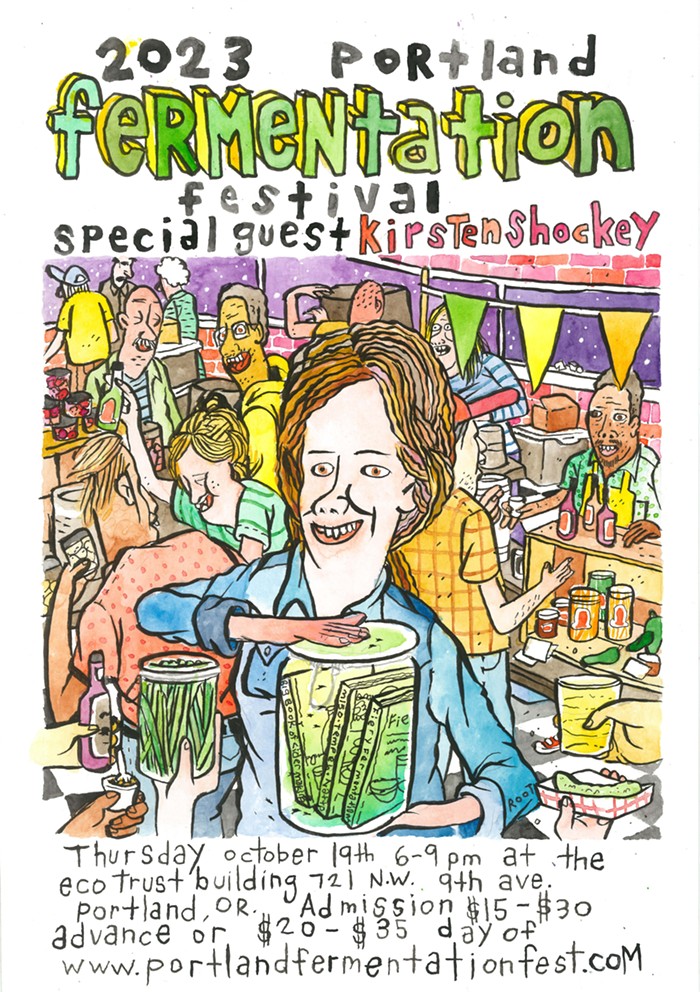 2023 PoRtland
feRMeNtatioN
festival
special guest KirsTen Shockey
Fie
ROOT
Thursday october 19th 6-9pm at the
eco Trust building 721 N.W. 9th ave.
Portland, OR. Admission $15-$30
advance or $20-$35 day of
www.portlandfermentationfest.coM